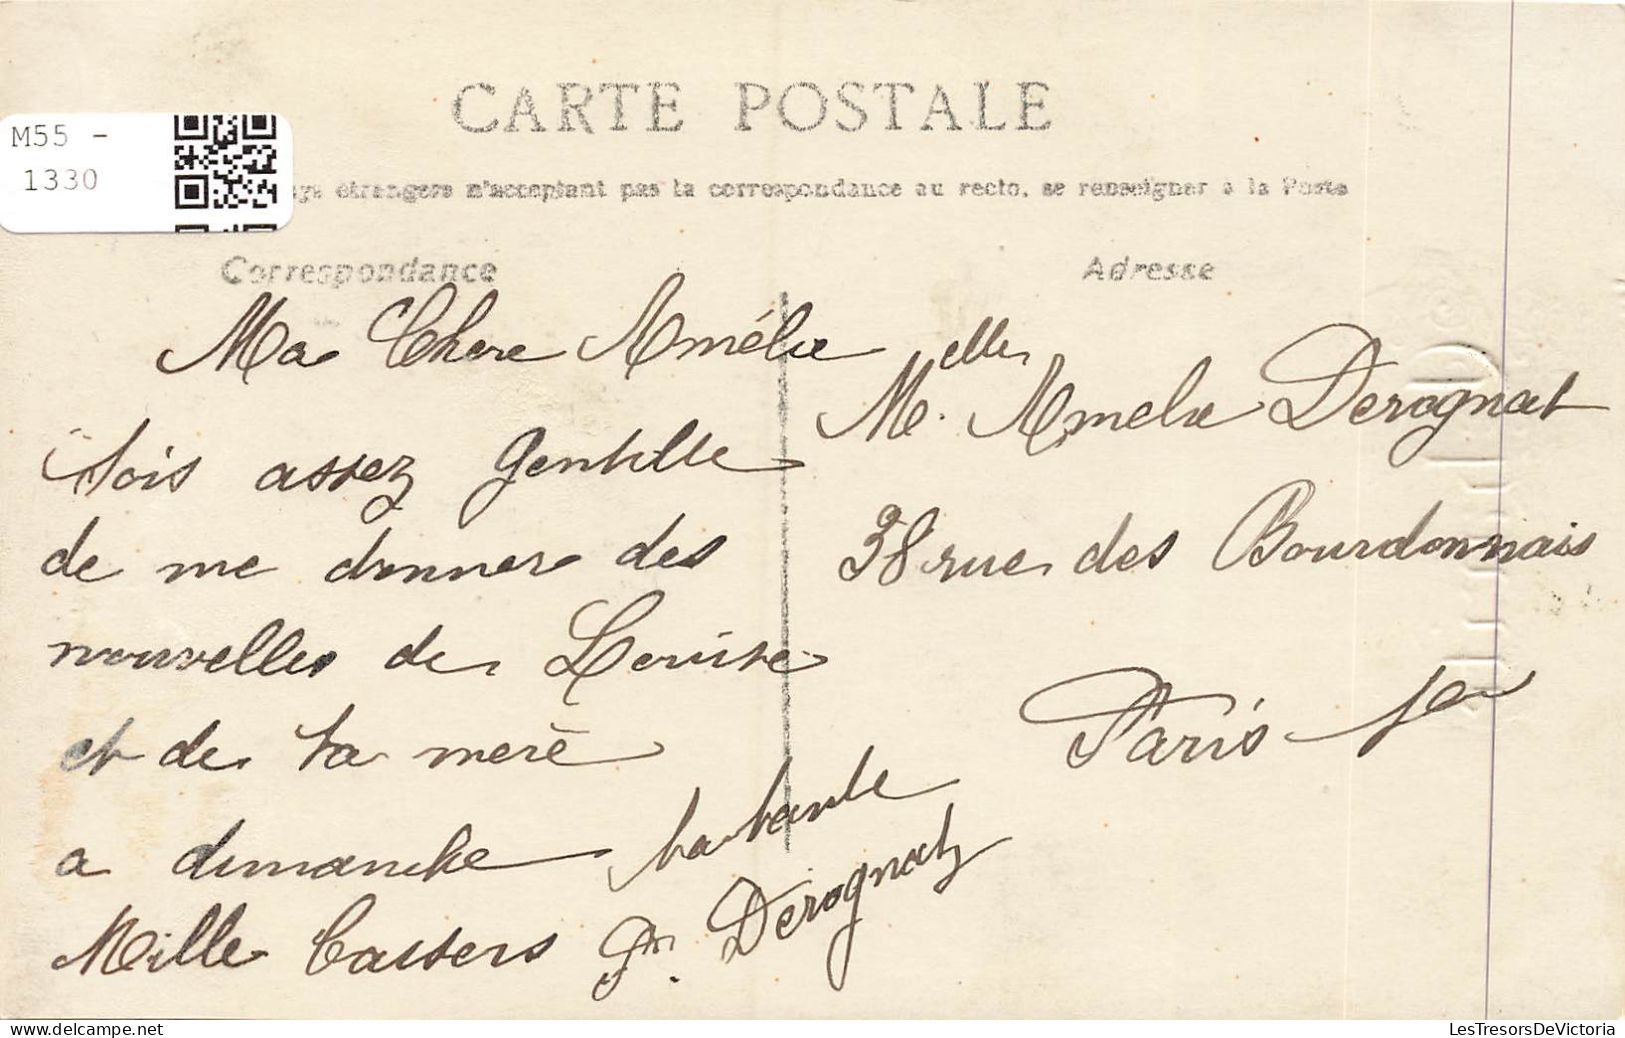 CARTE POSTALE
M55 -
1330
ays étrangers n'acceptant pas la correspondance au recto, se renseigner a la Poste
Correspondance
Adresse
Ma Chere Amélie
Sois assez gentille
de me donner des
nouvelles de Louise
et de ta merè
a dimanche
Mille Baisers
ta tante
Derognat
Melle Amelie Derognat
38 rue des Bourdonnais
Paris 1er
delcampe.net
LesTresorsDeVictoria